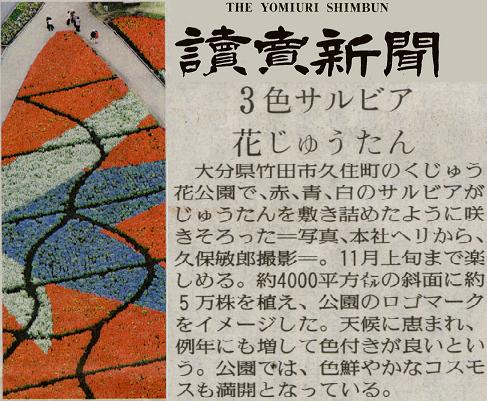 THE YOMIURI SHIMBUN
讀賣新聞
3色サルビア
花じゅうたん
大分県竹田市久住町のくじゅう
花公園で、赤、青、白のサルビアが
じゅうたんを敷き詰めたように咲
きそろった=写真、本社ヘリから、
久保敏郎撮影=。11月上旬まで楽
しめる。約4000平方㍍の斜面に約
5万株を植え、公園のロゴマーク
をイメージした。天候に恵まれ、
例年にも増して色付きが良いとい
う。公園では、色鮮やかなコスモ
スも満開となっている。